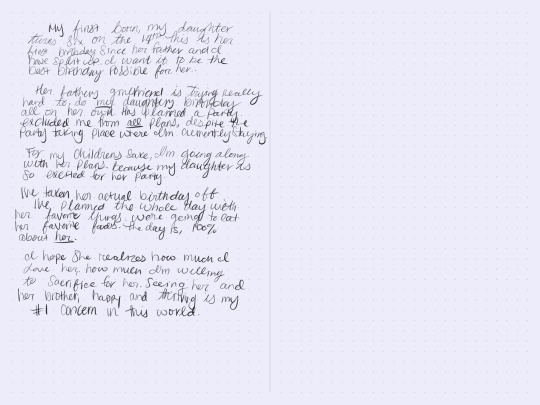 My first born, my daughter
turns six on the 14th. this is her
first birthday since her father and I
have split up. I want it to be the
best birthday possible for her.
Her fathers girlfriend is trying really
hard to do my daughters birthday
all on her own. Has planned a party
excluded me from all plans, despite the
party taking place where I'm currently staying
For my childrens sake, I'm going along
with her plans. because my daughter is
so excited for her party.
I've taken her actual birthday off
I've planned the whole day with
her favorite things. were going to eat
her favorite foods. the day is, 100%
about her.
I hope she realizes how much I
love her. how much I'm willing
to sacrifice for her. Seeing her and
her brother, happy and thriving is my
#1 concern in this world.